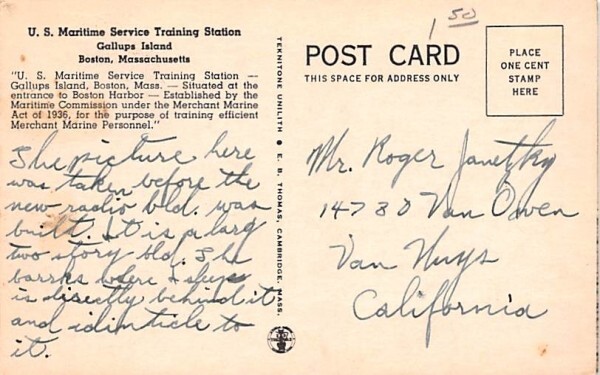 U. S. Maritime Service Training Station
Gallups Island
Boston, Massachusetts
"U. S. Maritime Service Training Station —
Gallups Island, Boston, Mass. — Situated at the
entrance to Boston Harbor — Established by the
Maritime Commission under the Merchant Marine
Act of 1936, for the purpose of training efficient
Merchant Marine Personnel."
The picture here
was taken before the
new radio bld. was
built. It is a larg
two story bld. The
barrks where I sleep
is directly behind it
and idinticle to
it.
TEKNITONE UNILITH ● E. B. THOMAS, CAMBRIDGE, MASS.
1 50
POST CARD
THIS SPACE FOR ADDRESS ONLY
PLACE
ONE CENT
STAMP
HERE
Mr. Roger Janetzky
14730 Van Owen
Van Nuys
California